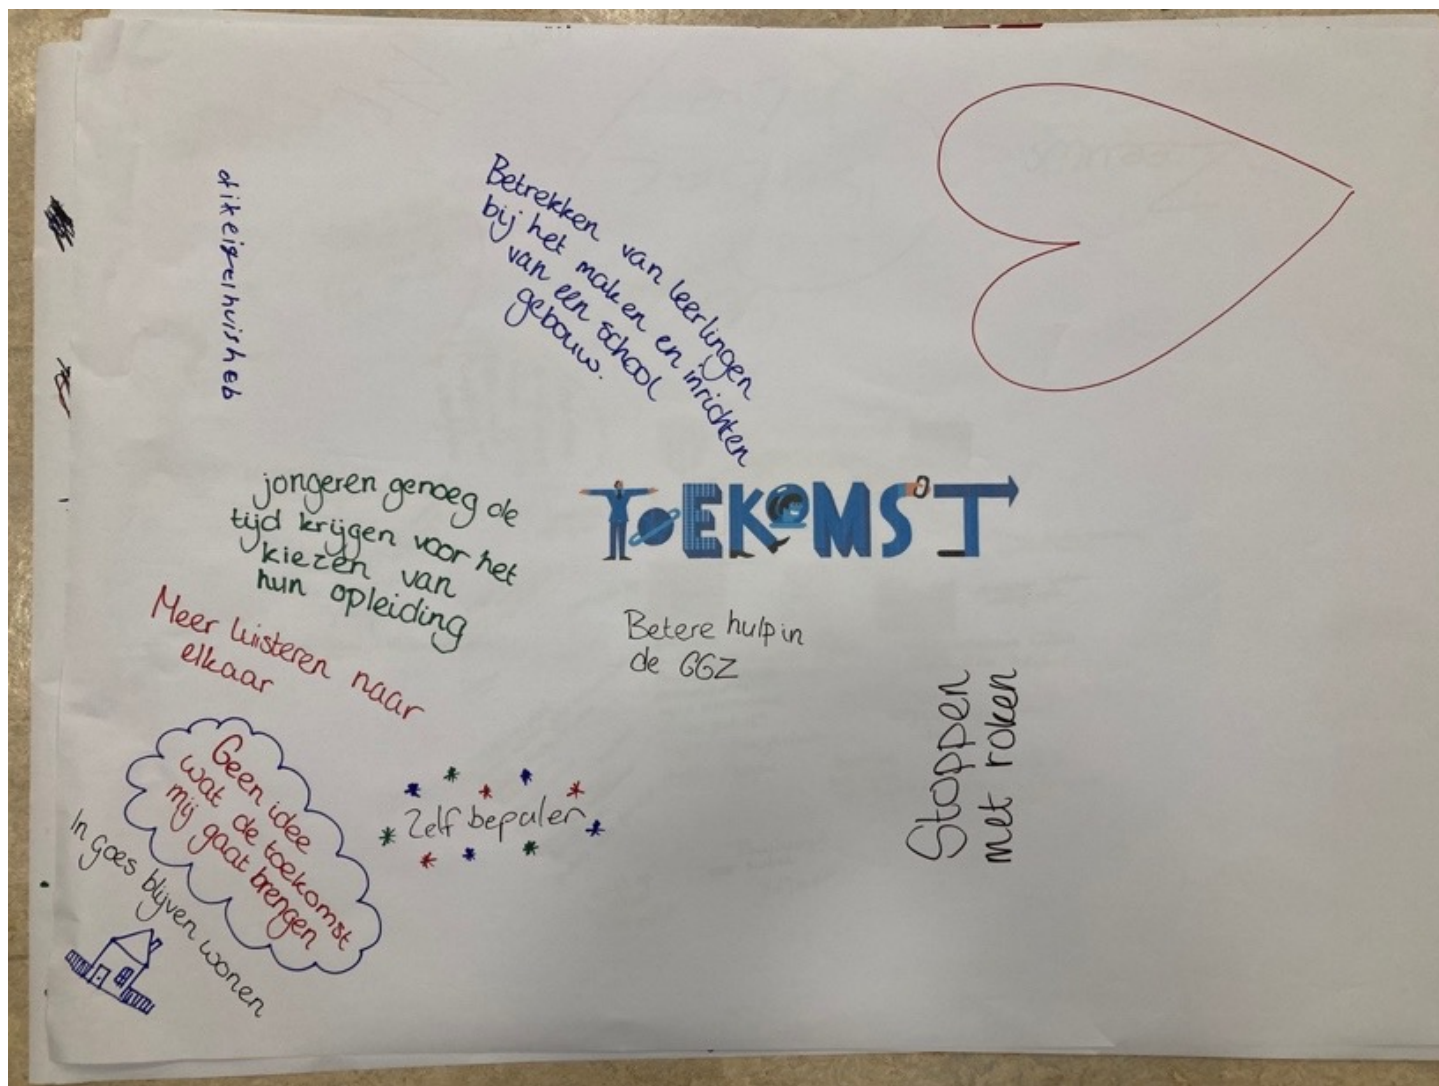 Betrekken van leerlingen
bij het maken en inrichten
van een school
gebouw.
jongeren genoeg de
tijd krijgen voor het
kiezen van
hun opleiding
TOEKOMST
Meer luisteren naar
elkaar
Betere hulp in
de GGZ
Stoppen
met roken
Geen idee
wat de toekomst
mij gaat brengen
Zelf bepalen
In goes blijven wonen